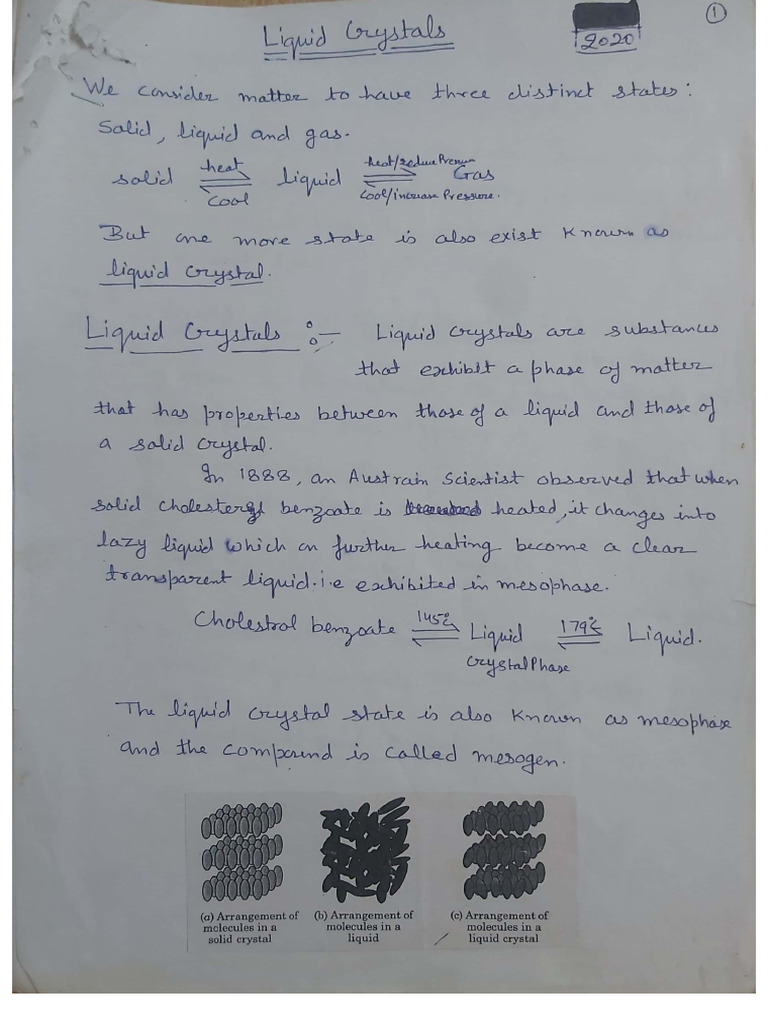 1
Liquid Crystals
2020
We consider matter to have three distinct states:
Solid, liquid and gas.
solid heat cool liquid heat/reduce Pressure cool/increase Pressure. Gas
But one more state is also exist known as
liquid crystal.
Liquid Crystals :- Liquid crystals are substances
that exhibit a phase of matter
that has properties between those of a liquid and those of
a solid crystal.
In 1888, an Austrain Scientist observed that when
solid cholesteryl benzoate is heated, it changes into
lazy liquid which on further heating become a clear
transparent liquid. i.e exhibited in mesophase.
Cholestrol benzoate 145°c Liquid 179°c Liquid.
Crystal Phase
The liquid crystal state is also known as mesophase
and the compound is called mesogen.
(a) Arrangement of molecules in a solid crystal
(b) Arrangement of molecules in a liquid
(c) Arrangement of molecules in a liquid crystal